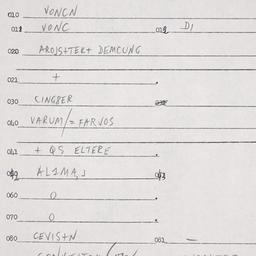 010 VONCN
011 VONC 012 DJ
020 AROJS+TER+ DEMCUNG
021 +
030 CINGBER
040 VARUM/= FARVOS
041 + QS ELTERE
042 ALIMA,J 043
060 0
070 0
080 CEVIS+N 081 –